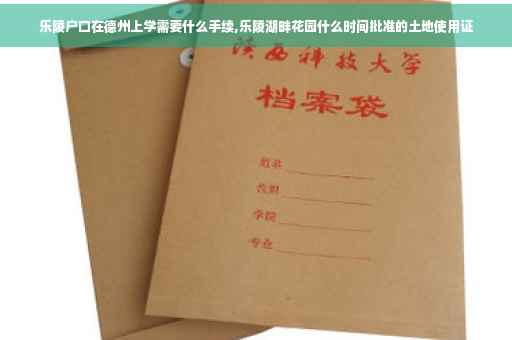 乐陵户口在德州上学需要什么手续,乐陵湖畔花园什么时间批准的土地使用证
陕西科技大学
档案袋
姓名
学院
专业